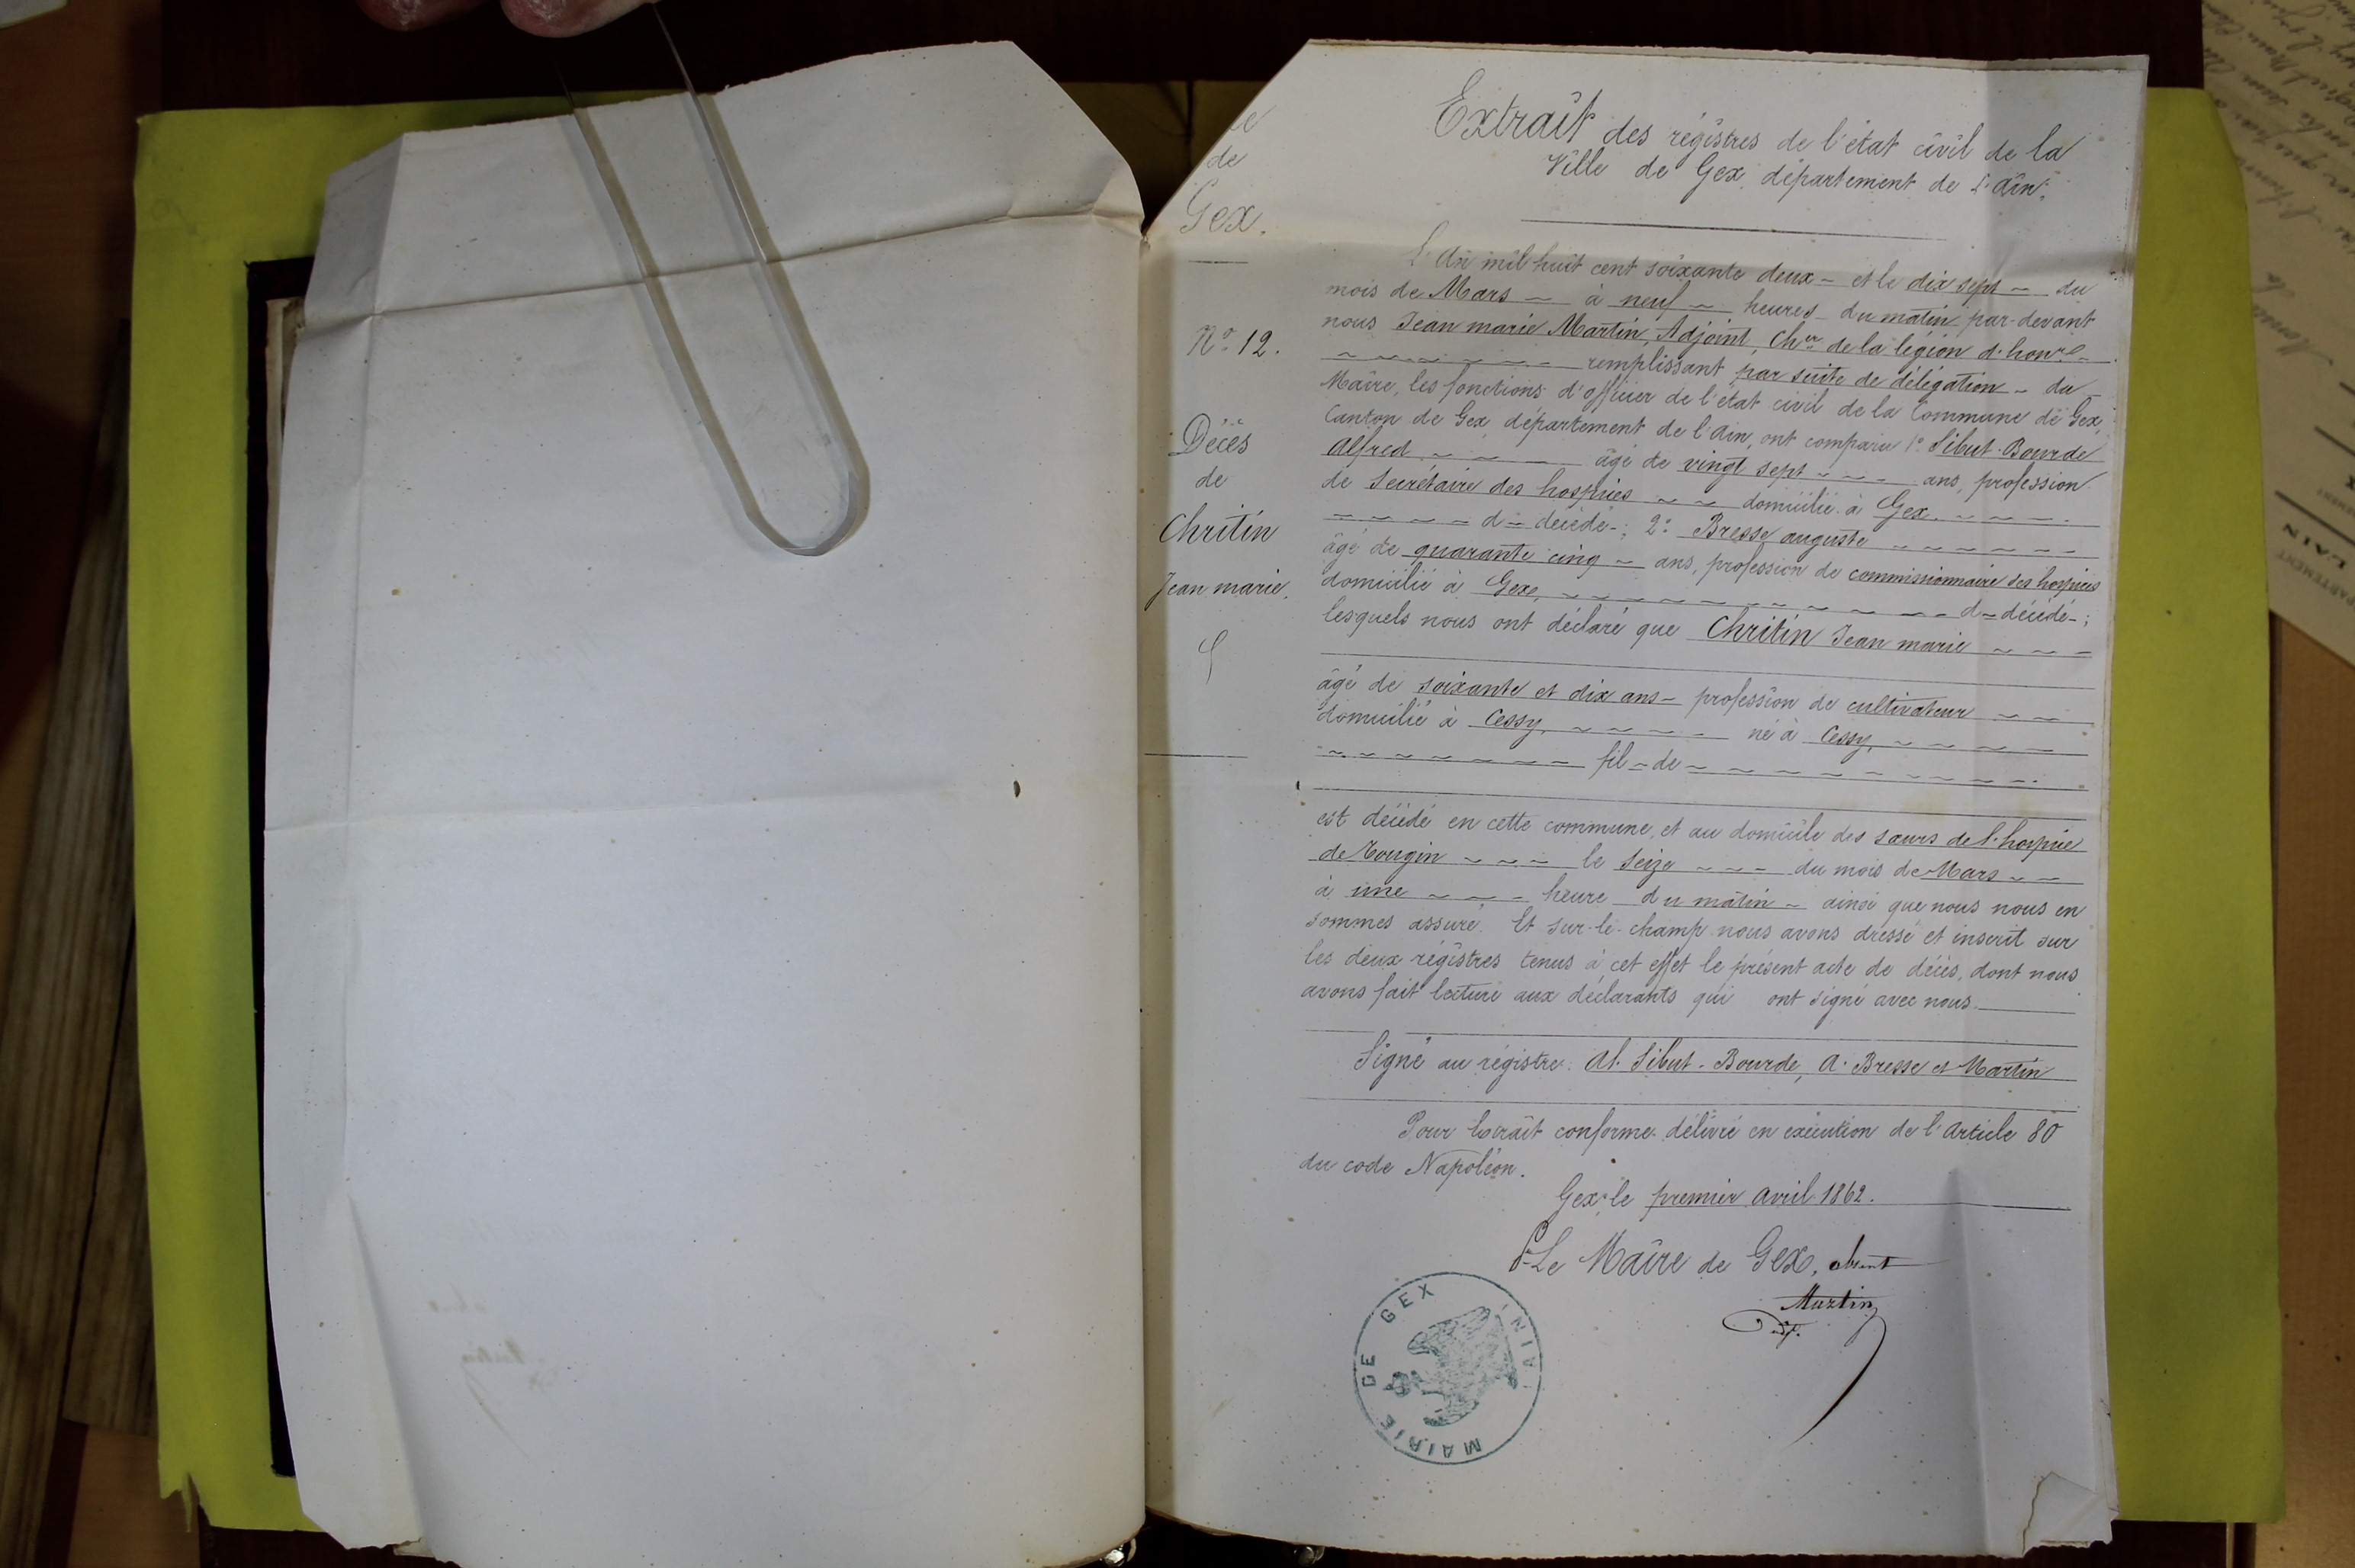 de
Gex.
N° 12.
Décès
de
Chritin
Jean marie.
Extrait des régistres de l'état civil de la
Ville de Gex, département de l'Ain.
L'An mil huit cent soixante deux - et le dix sept - du
mois de Mars - à neuf - heures du matin par-devant
nous Jean marie Martin, Adjoint, Cher de la légion d'honre
remplissant par suite de délégation - du
Maire, les fonctions d'officier de l'état civil de la Commune de Gex,
Canton de Gex, département de l'Ain, ont comparu 1° Sibut-Bourde
Alfred - - - âgé de vingt sept - - - ans, profession
de Secrétaire des hospices - - domicilié à Gex. - - -
- - - - d - décédé - ; 2° Bresse auguste - - - - - -
âgé de quarante cinq - ans, profession de commissionnaire des hospices
domicilié à Gex, - - - - - - - - - - d - décédé - ;
lesquels nous ont déclaré que Chritin Jean marie - - -
âgé de soixante et dix ans - profession de cultivateur - -
domicilié à Cessy, - - - - - né à Cessy, - - - - -
- - - - - - - - fil - de - - - - - - - - -
est décédé en cette commune, et au domicile des sœurs de l'hospice
de Tougin - - - le Seize - - - du mois de Mars - -
à une - - - heure du matin - ainsi que nous nous en
sommes assuré. Et sur-le-champ nous avons dressé et inscrit sur
les deux régistres tenus à cet effet le présent acte de décès, dont nous
avons fait lecture aux déclarants qui ont signé avec nous.
Signé au régistre: Al. Sibut-Bourde, A. Bresse et Martin
Pour Extrait conforme délivré en exécution de l'Article 80
du code Napoléon.
Gex, le premier Avril 1862.
Pr Le Maire de Gex, absent
Martin
adj.
MAIRIE DE GEX (AIN)
L'AIN